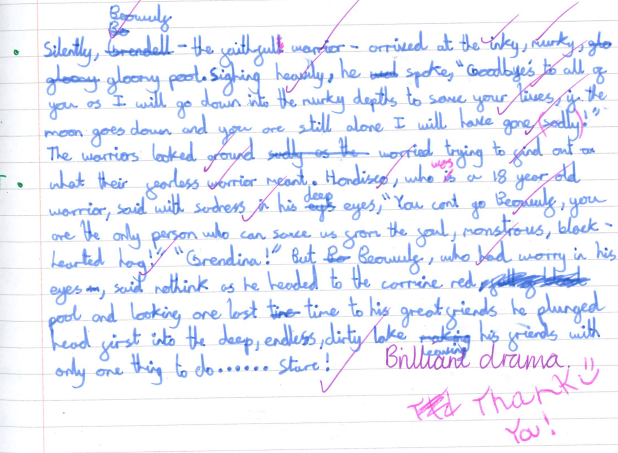 Beowulf
Silently, Grendell - the faithfull warrior - arrived at the inky, murky, glo
gloomy gloomy pool. Sighing heavily, he said spoke, "Goodbye's to all of
you as I will go down into the murky depths to save your lives, if the
moon goes down and you are still alone I will have gone (sadly)!"
The warriors looked around sadly as the worried trying to find out
what their fearless worrior meant. Hondisco, who is was a 18 year old
warrior, said with sadness in his eyes deep eyes, "You cant go Beowulf, you
are the only person who can save us from the foul, monstrous, black -
hearted hag!" "Grendina!" But Be Beowulf, who had worry in his
eyes, said nothink as he headed to the carmine red
pool and looking one last time time to his great friends he plunged
head first into the deep, endless, dirty lake making leaving his friends with
only one thing to do...... Stare!
Brilliant drama.
Thank
You!